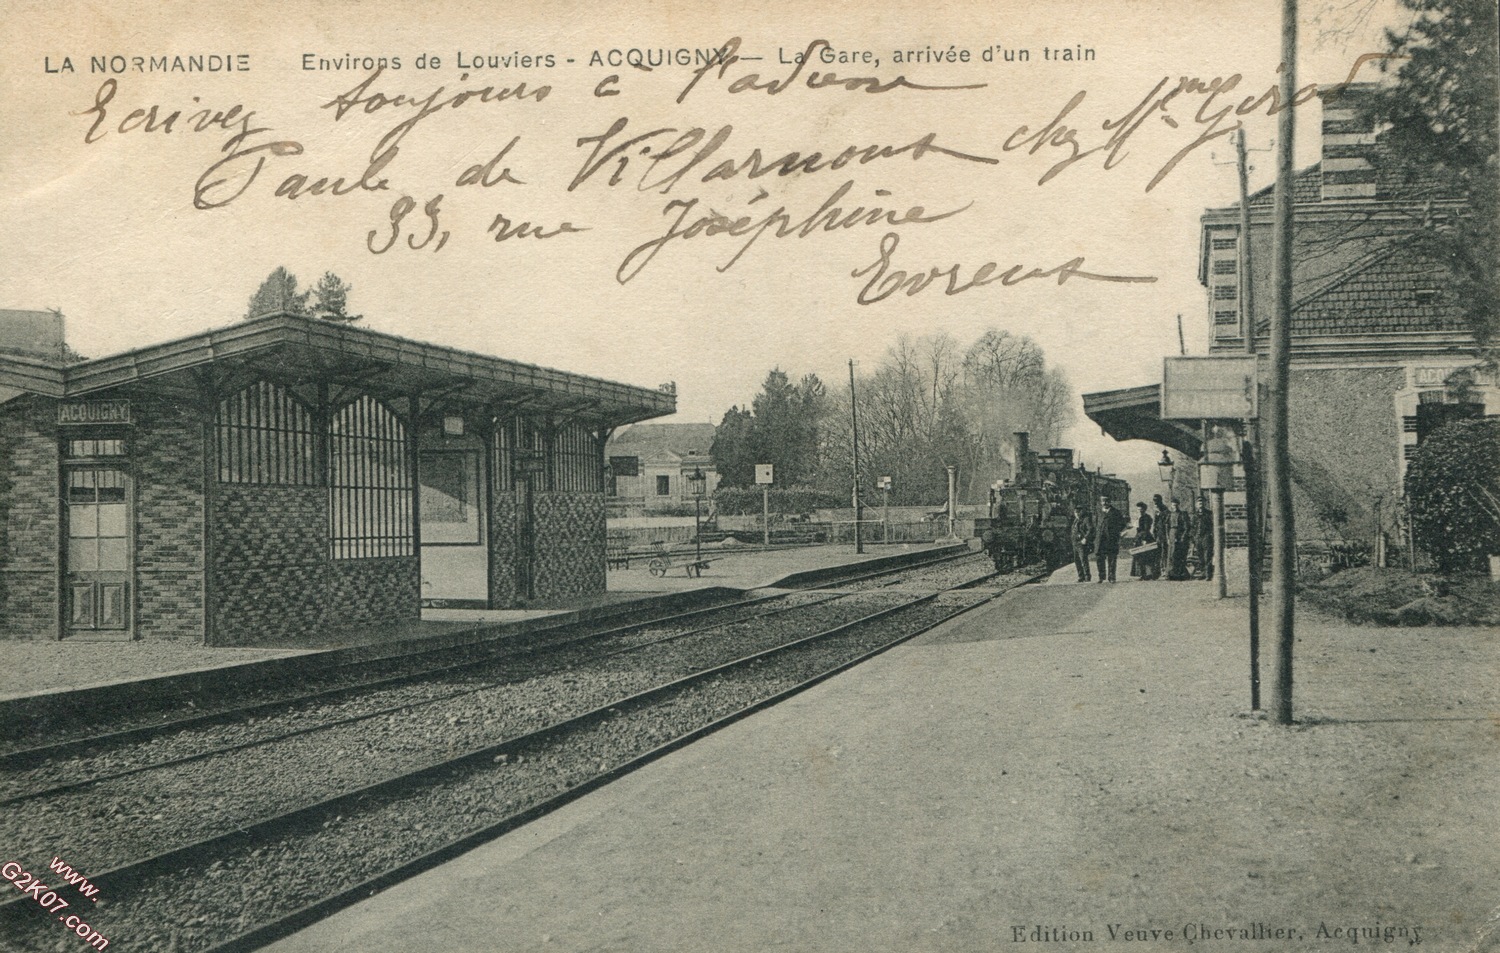 LA NORMANDIE Environs de Louviers - ACQUIGNY — La Gare, arrivée d'un train
Ecrivez toujours à l'adresse
Paule de Villarnous chez Mme Girod
33, rue Joséphine
Evreux
ACQUIGNY
ACQU
Edition Veuve Chevallier, Acquigny
www.
G2K07.com